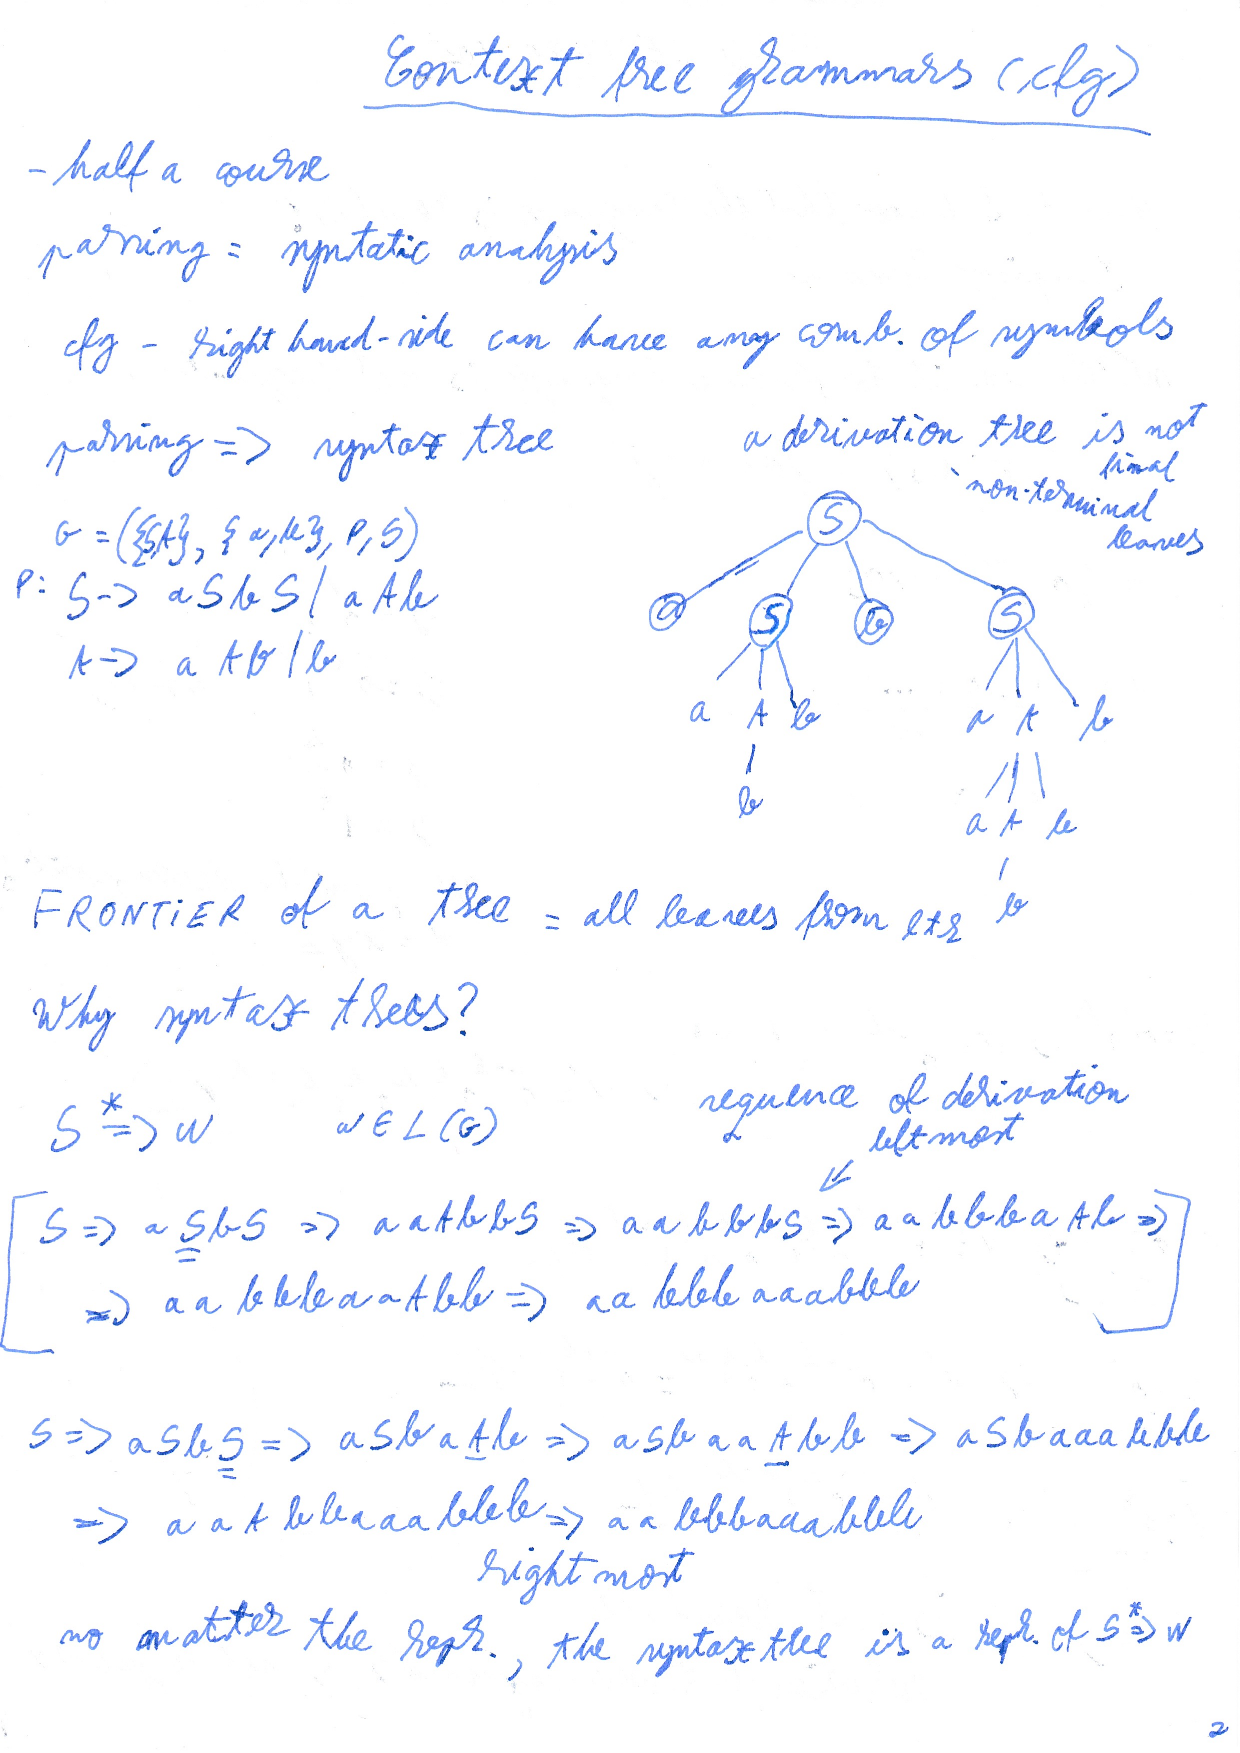 Context free grammars (cfg)
- half a course
parsing = syntatic analysis
cfg - right hand-side can have any comb. of symbols
parsing => syntax tree
a derivation tree is not final
non-terminal leaves
G = ({S,A}, {a,b}, P, S)
P: S -> aSbS | aAb
A -> aAb | b
S
a S b S
a A b a A b
b a A b
b
FRONTIER of a tree = all leaves from l+r
Why syntax trees?
S *=> w w ∈ L(G)
sequence of derivation
leftmost
S => aSbS => aaAbbS => aabbbS => aabbbaAb =>
=> aabbbaaAbb => aabbbaaabbb
S => aSbS => aSbaAb => aSbaaAbb => aSbaaabbb
=> aaAbbaaabbb => aabbbaaabbb
rightmost
no matter the repr., the syntax tree is a repr. of S *=> w
2